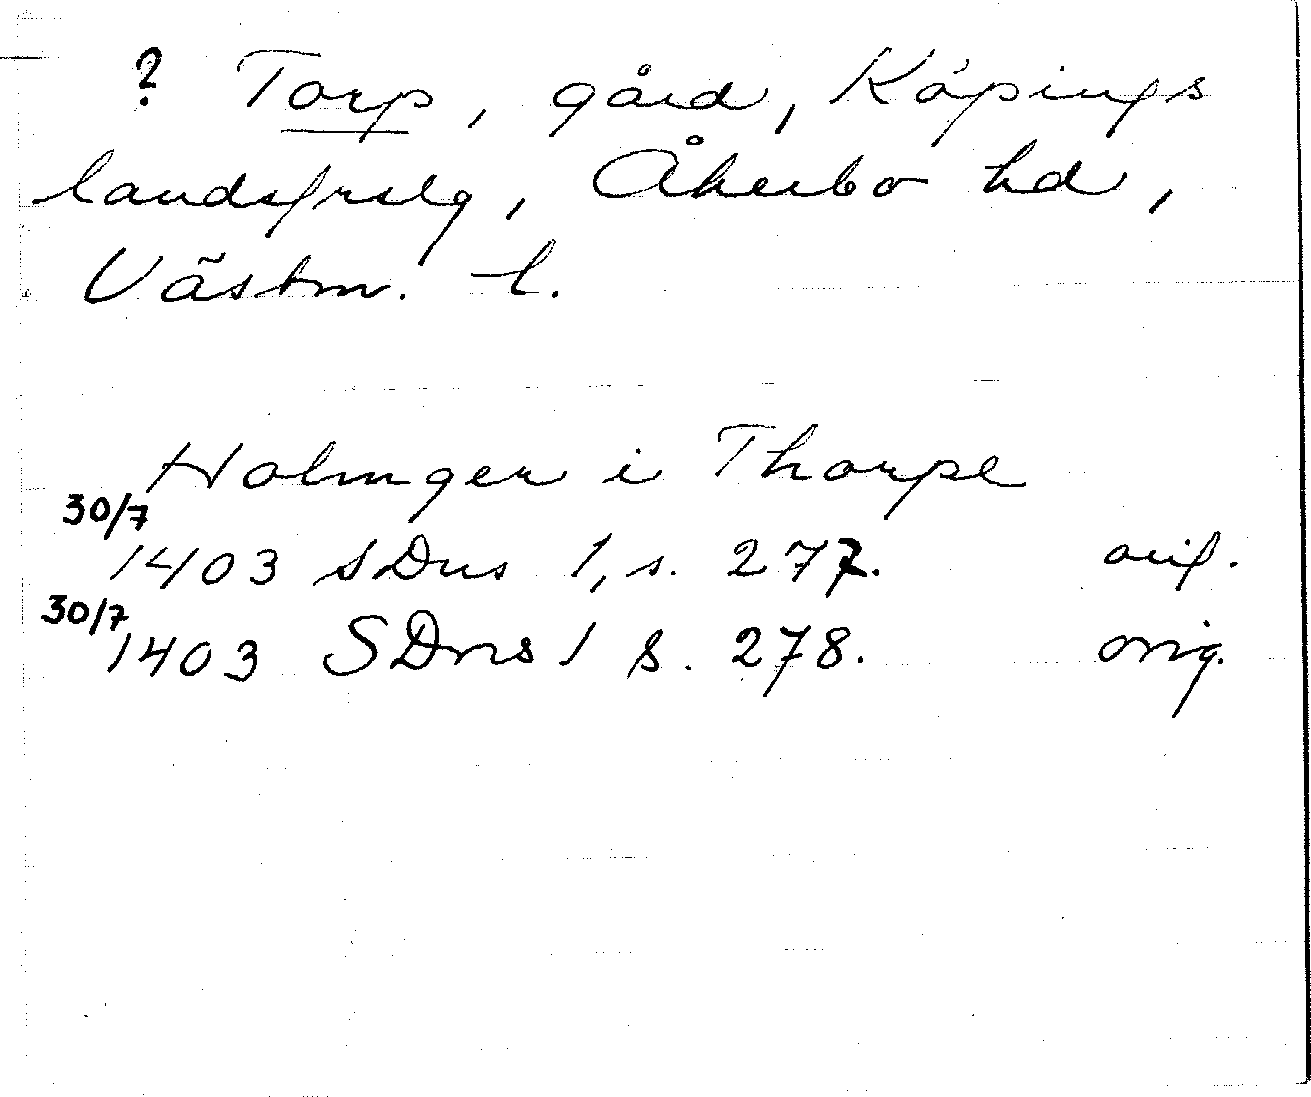 ? Torp, gård, Köpings
landsfrslg, Åkerbo hd,
Västm. l.
Holmger i Thorpe
30/7
1403 SDns 1, s. 277. orig.
30/7
1403 SDns 1 s. 278. orig.